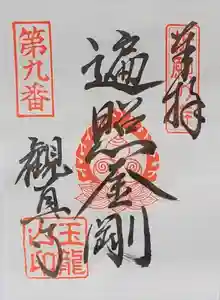 奉拝
遍照金剛
観真寺
第九番
玉龍